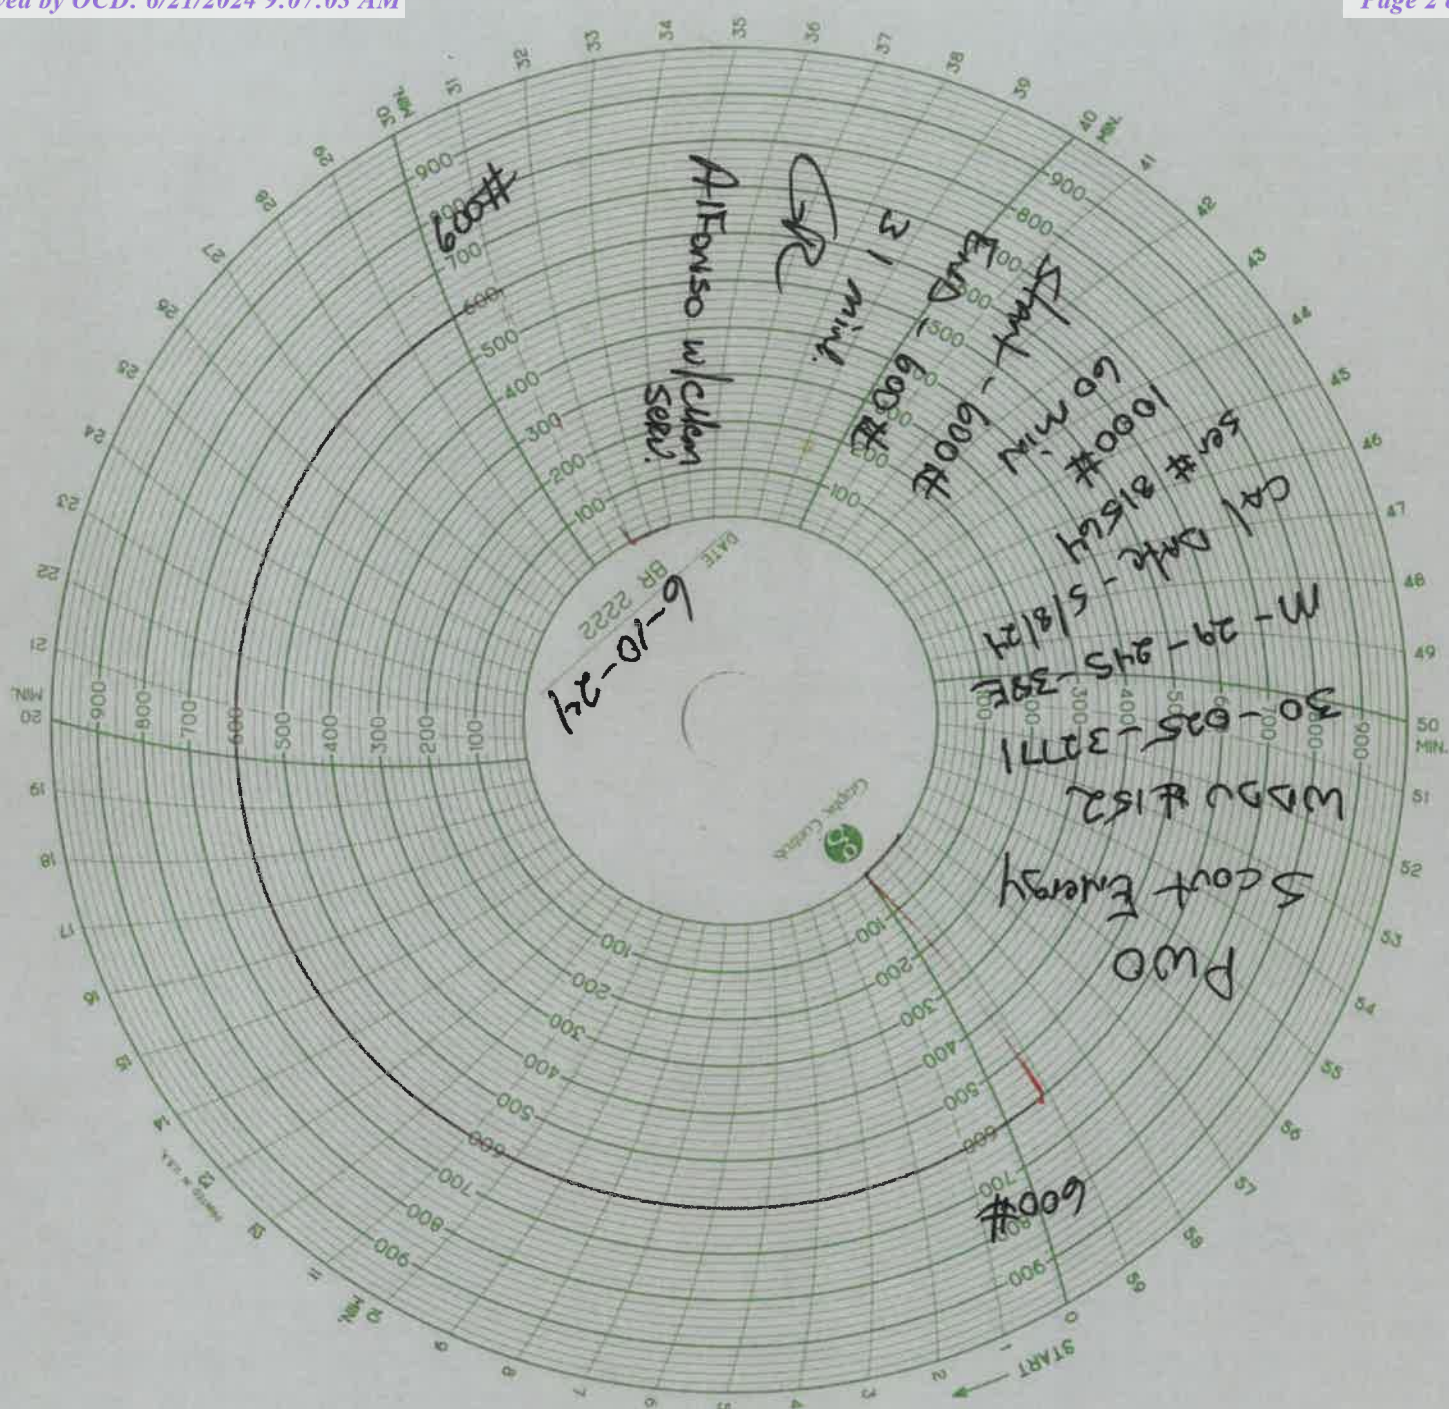 ved by OCD: 6/21/2024 9:07:03 AM
Page 2
PWO
Scout Energy
WBDU #152
30-025-32771
M-29-24S-38E
CAl DAte - 5/8/24
Ser# 81564
1000#
60 min
Start - 600#
End, 600#
31 mint.
GR
AlFonso w/Chem
Serv.
600#
600#
DATE
6-10-24
BR 2222
Graphic Controls
START
0
1
2
3
4
5
6
7
8
9
10 MIN.
11
12
13
14
15
16
17
18
19
20 MIN.
21
22
23
24
25
26
27
28
29
30 MIN.
31
32
33
34
35
36
37
38
39
40 MIN.
41
42
43
44
45
46
47
48
49
50 MIN.
51
52
53
54
55
56
57
58
59
100 200 300 400 500 600 700 800 900
100 200 300 400 500 600 700 800 900
100 200 300 400 500 600 700 800 900
100 200 300 400 500 600 700 800 900
100 200 300 400 500 600 700 800 900
100 200 300 400 500 600 700 800 900